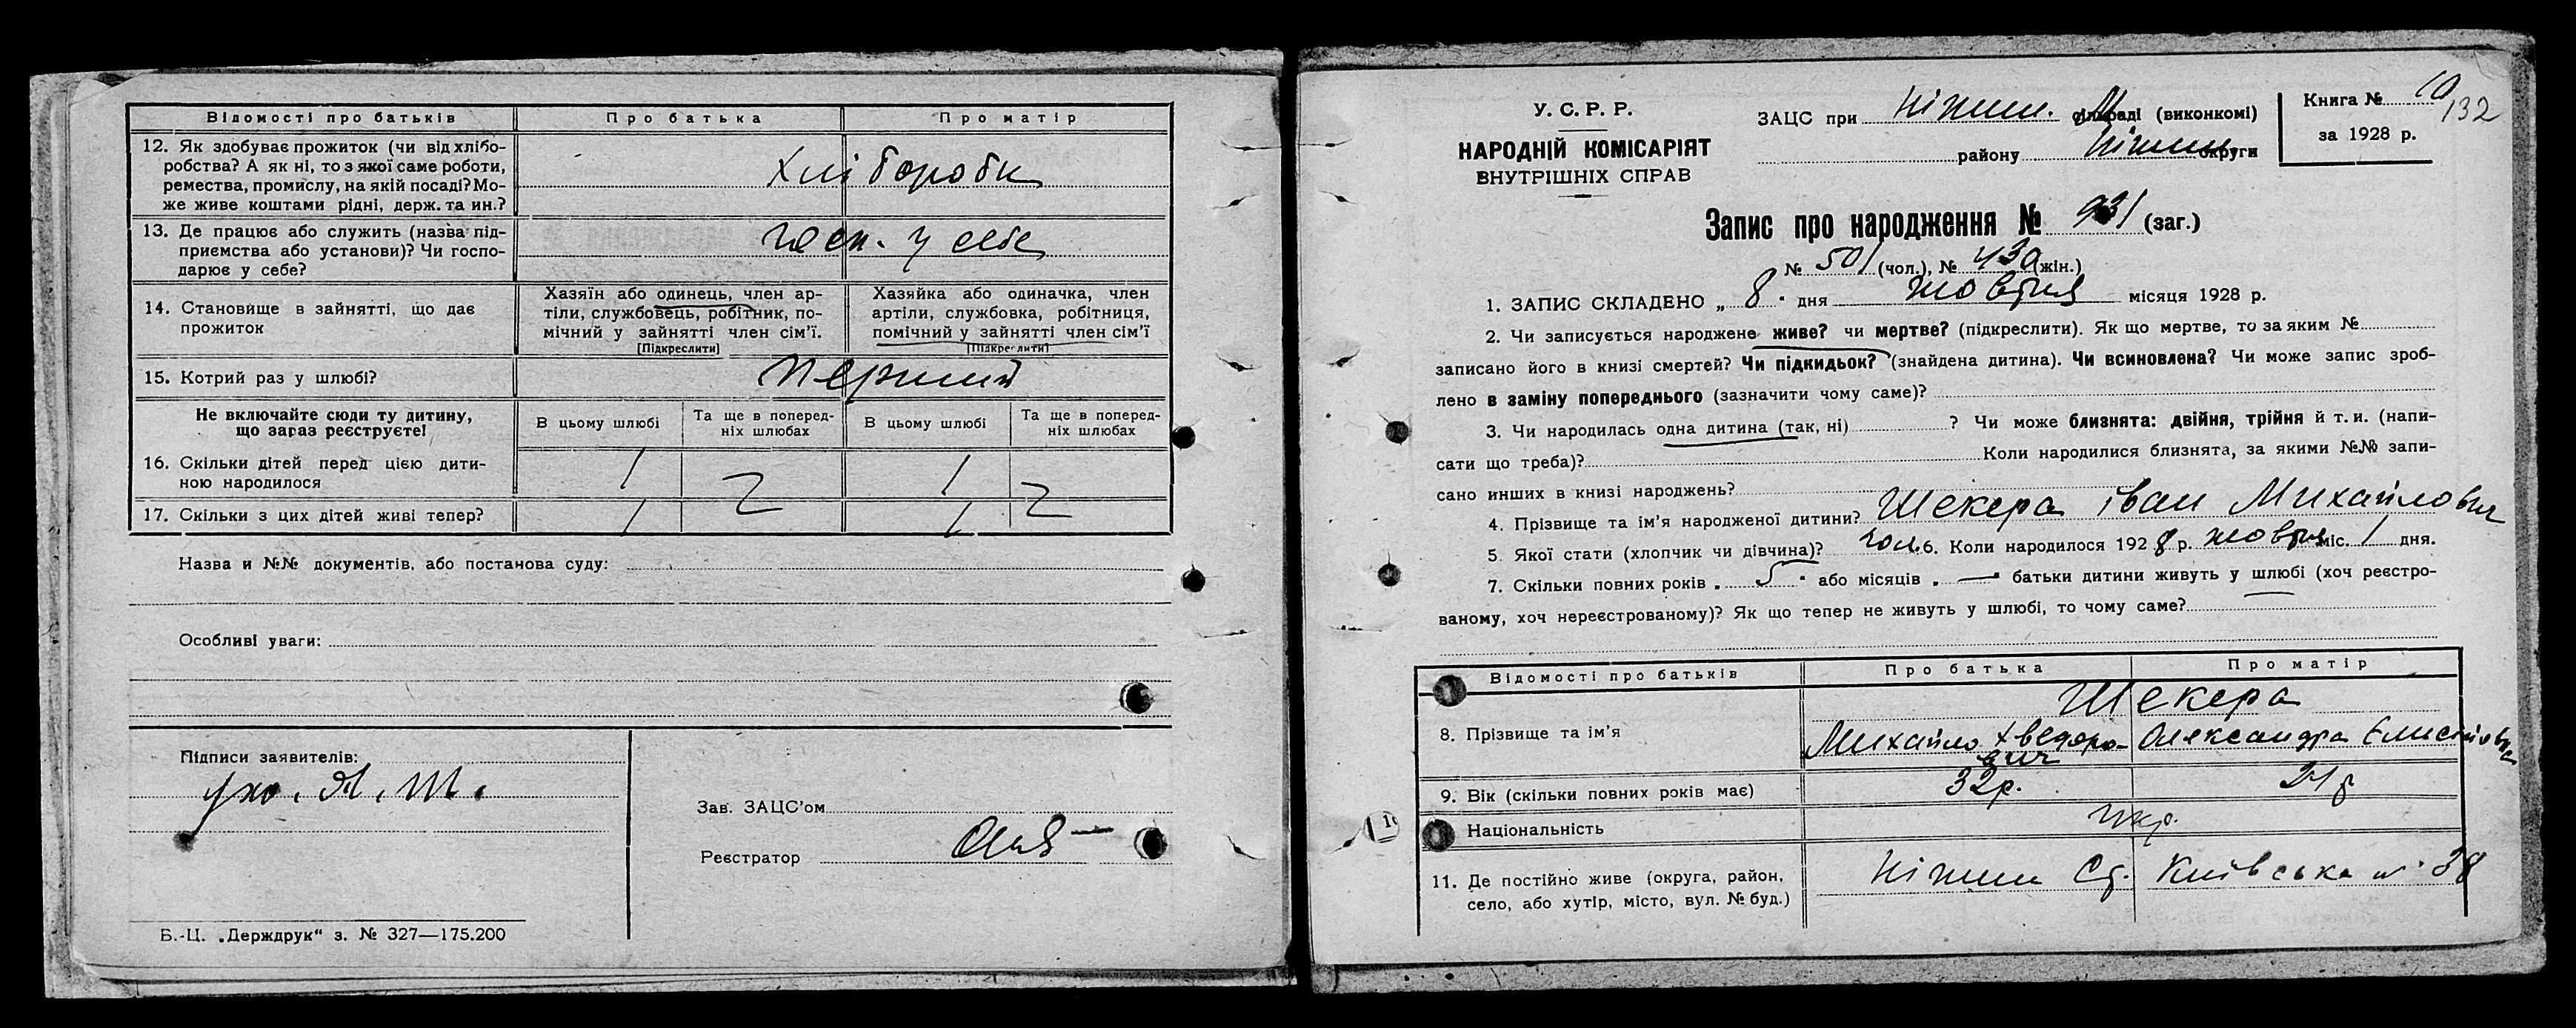 Відомості про батьків Про батька Про матір
12. Як здобуває прожиток (чи від хлібо-
робства? А як ні, то з якої саме роботи,
ремества, промислу, на якій посаді? Мо-
же живе коштами рідні, держ. та ин.?
Хлібороби
13. Де працює або служить (назва під-
приємства або установи)? Чи госпо-
дарює у себе?
госп. у себе
14. Становище в зайнятті, що дає
прожиток
Хазяїн або одинець, член ар-
тіли, службовець, робітник, по-
мічний у зайнятті член сім'ї.
[Підкреслити]
Хазяйка або одиначка, член
артіли, службовка, робітниця,
помічний у зайнятті член сім'ї
[Підкреслити]
15. Котрий раз у шлюбі? перший
Не включайте сюди ту дитину,
що зараз реєструєте!
В цьому шлюбі
Та ще в поперед-
ніх шлюбах
В цьому шлюбі
Та ще в поперед-
ніх шлюбах
16. Скільки дітей перед цією дити-
ною народилося
1 1
17. Скільки з цих дітей живі тепер? 1 1
Назва и №№ документів, або постанова суду:
Особливі уваги:
Підписи заявителів:
Зав. ЗАЦС'ом
Реєстратор
Б.-Ц. „Держдрук" з. № 327—175.200
У. С. Р. Р.
НАРОДНІЙ КОМІСАРІЯТ
ВНУТРІШНІХ СПРАВ
ЗАЦС при Ніжин. М сільраді (виконкомі)
району Ніжин округи
Книга № 10
132
за 1928 р.
Запис про народження № 931 (заг.)
№ 501 (чол.), № 430 (жін.)
1. ЗАПИС СКЛАДЕНО „ 8 " дня жовтня місяця 1928 р.
2. Чи записується народжене живе? чи мертве? (підкреслити). Як що мертве, то за яким №
записано його в книзі смертей? Чи підкидьок? (знайдена дитина). Чи всиновлена? Чи може запис зроб-
лено в заміну попереднього (зазначити чому саме)?
3. Чи народилась одна дитина (так, ні) ? Чи може близнята: двійня, трійня й т. и. (напи-
сати що треба)? Коли народилися близнята, за якими №№ запи-
сано инших в книзі народжень?
4. Прізвище та ім'я народженої дитини? Шекера Іван Михайлович
5. Якої стати (хлопчик чи дівчина)? чол. 6. Коли народилося 1928 р. жовтня міс. 1 дня.
7. Скільки повних років „ 5 " або місяців „ — " батьки дитини живуть у шлюбі (хоч реєстро-
ваному, хоч нереєстрованому)? Як що тепер не живуть у шлюбі, то чому саме?
Відомості про батьків Про батька Про матір
Шекера
8. Прізвище та ім'я Михайло Хведоро- Олександра
вич
9. Вік (скільки повних років має) 32 р.
Національність укр.
11. Де постійно живе (округа, район,
село, або хутір, місто, вул. № буд.)
Ніжин Ст. Київська № 38